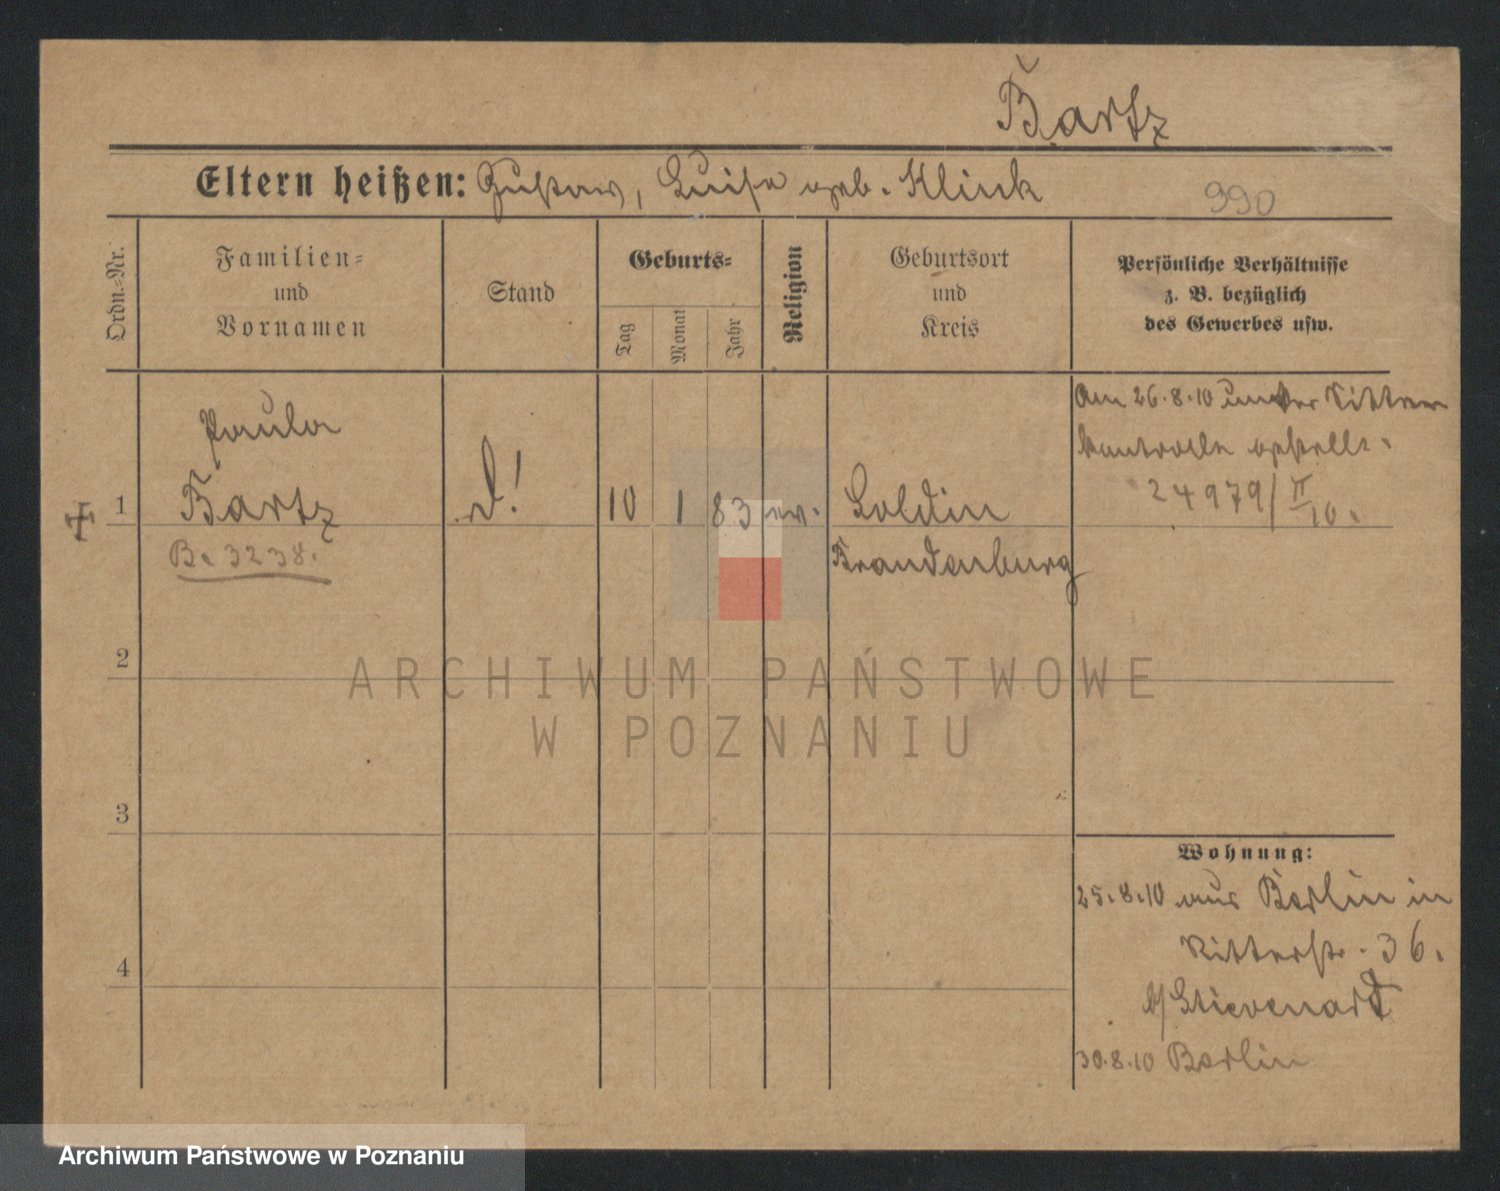 Bartz
Eltern heißen: Gustav, Luise geb. Klink
990
Ordn.-Nr.
Familien-
und
Vornamen
Stand
Geburts-
Tag
Monat
Jahr
Religion
Geburtsort
und
Kreis
Persönliche Verhältnisse
z. B. bezüglich
des Gewerbes usw.
Am 26.8.10 unter Sitten
kontrolle gestellt.
24979/II/10.
Paula
1 Bartz d! 10 1 83 ev. Soldin
B. 3238.
Brandenburg
2
3
4
Wohnung:
25.8.10 aus Berlin in
Ritterstr. 36.
b/ Stievenard
30.8.10 Berlin
ARCHIWUM PAŃSTWOWE
W POZNANIU
Archiwum Państwowe w Poznaniu